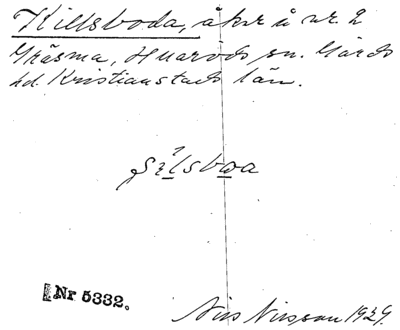 Killsboda, åkr å nr. 2
Gräsma, Huaröds sn. Gärds
hd. Kristianstads län.
Nr 5332.
Nils Nilsson 1929.